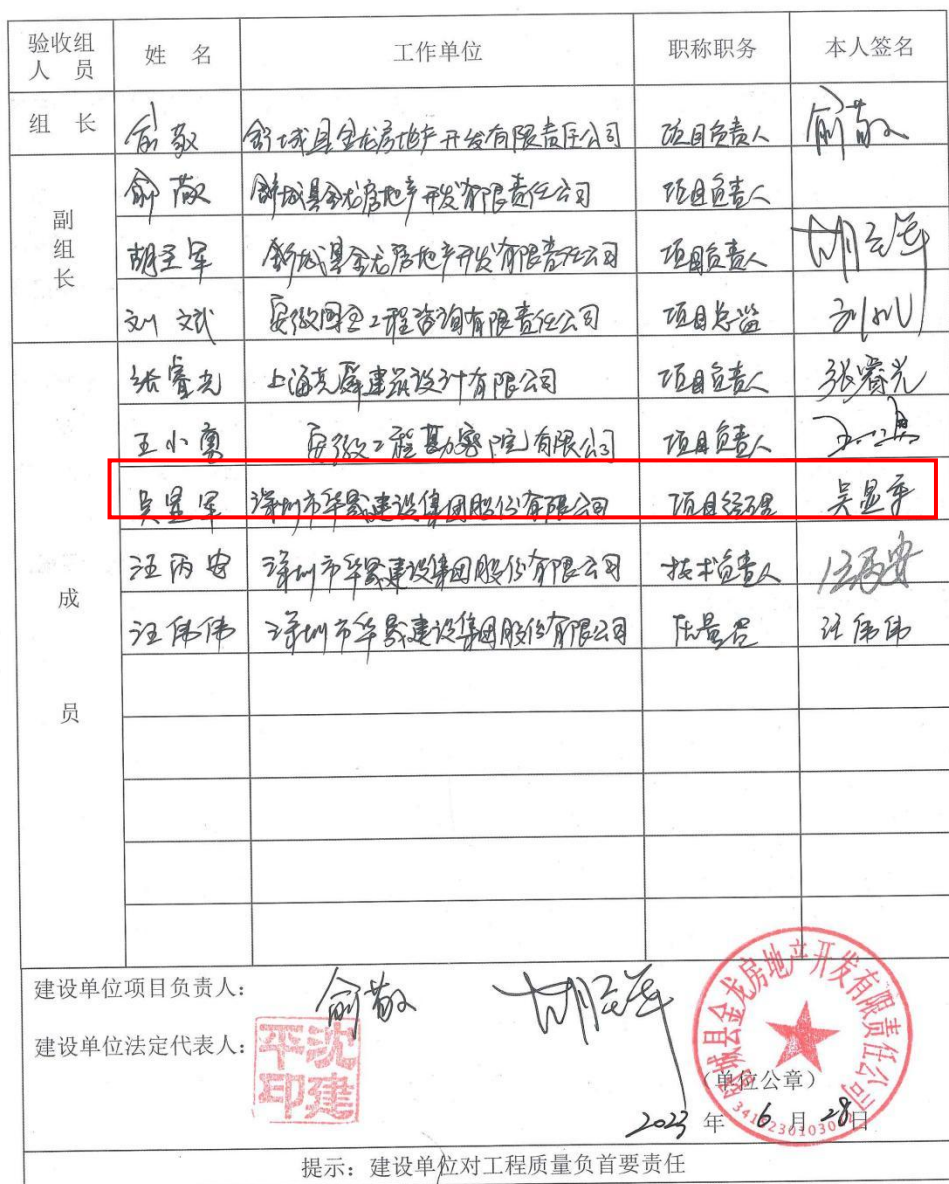 验收组人员 姓名 工作单位 职称职务 本人签名
组长 俞敬 舒城县金龙房地产开发有限责任公司 项目负责人 俞敬
副组长 俞敬 舒城县金龙房地产开发有限责任公司 项目负责人
胡圣军 舒城县金龙房地产开发有限责任公司 项目负责人 胡圣军
刘斌 安徽国圣工程咨询有限责任公司 项目总监 刘斌
成员 张睿光 上海 建筑设计有限公司 项目负责人 张睿光
王小 安徽工程勘察院有限公司 项目负责人
吴显军 深圳市华晟建设集团股份有限公司 项目经理 吴显军
汪丙安 深圳市华晟建设集团股份有限公司 技术负责人 汪丙安
汪伟伟 深圳市华晟建设集团股份有限公司 质量员 汪伟伟
建设单位项目负责人: 俞敬 胡圣军
建设单位法定代表人: 沈建平印
舒城县金龙房地产开发有限责任公司
(单位公章)
2023年6月28日
提示:建设单位对工程质量负首要责任